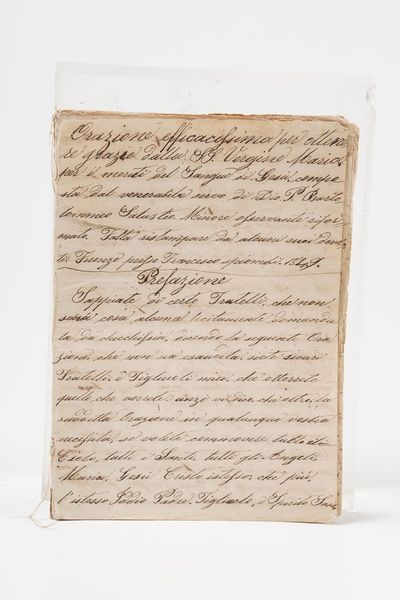 Orazione efficacissima per ottene
re grazie dalla SS. Vergine Maria
per i meriti del Sangue di Gesù, compo
sta dal venerabile servo di Dio P. Barto
lommeo Salustio Minore osservante rifor
mato. Fatta ristampare da alcuni suoi devo
ti. Firenze presso Francesco 1849.
Prefazione
Sappiate di certo Fratelli, che non
sarà cosa alcuna lecitamente domanda
ta da chicchessia, dicendo la seguente Ora
zione, che non sia esaudita, siate sicuri
Fratelli, e Figliuoli miei, che otterrete
quello, che vorrete: anzi vi dico, che oltre la
suddetta Orazione in qualunque vostra
necessità, se volete commovere tutto il
Cielo, tutti i Santi, tutti gli Angeli,
Maria, Gesù Cristo istesso, che più,
l'istesso Iddio Padre, Figliuolo, e Spirito San